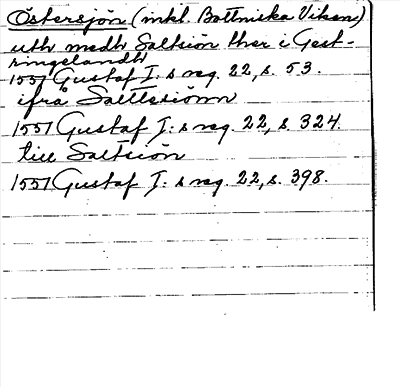 Östersjön (inkl. Bottniska Viken)
uth medh Saltsiön ther i Gest-
ringelandh
1557 Gustaf I:s reg. 22, s. 53.
ifrå Salltsiönn
1557 Gustaf I:s reg. 22, s. 324.
till Saltsiön
1557 Gustaf I:s reg. 22, s. 398.